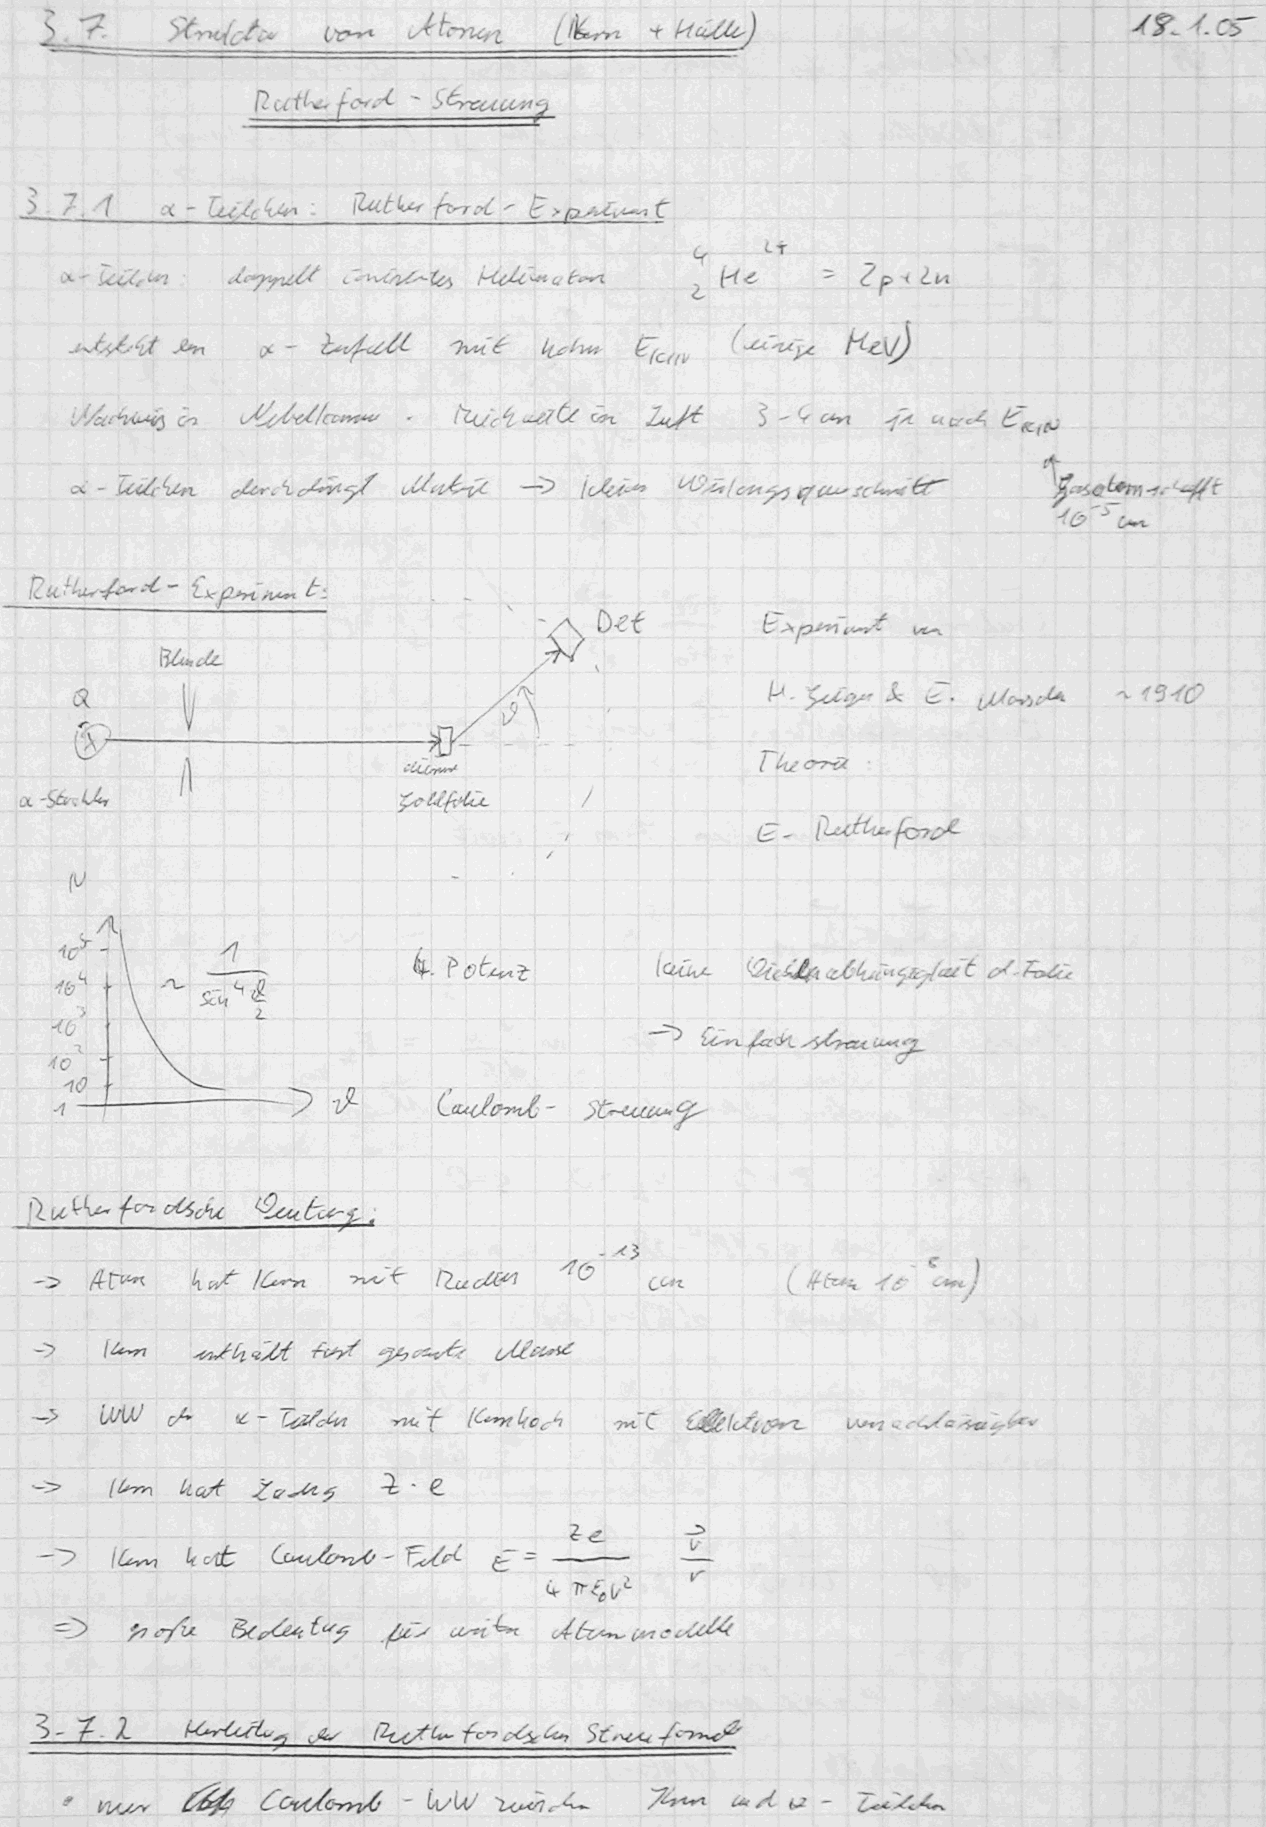 3.7. Struktur von Atomen (Kern + Hülle) 18.1.05
Rutherford-Streuung
3.7.1 α-Teilchen: Rutherford-Experiment
α-Teilchen: doppelt ionisiertes Heliumatom ⁴₂He²⁺ = 2p+2n
entsteht im α-Zerfall mit hohem E_KIN (einige MeV)
Nachweis in Nebelkammer. Reichweite in Luft 3-4cm je nach E_KIN
α-Teilchen durchdringt Materie → kleiner Wirkungsquerschnitt
10⁻⁵ cm
Rutherford-Experiment:
Det
Experiment von
Blende
Q
H. Geiger & E. Marsden ~1910
ϑ
dünne
Theorie:
α-Strahler
Goldfolie
E. Rutherford
N
10⁵
~ 1/(sin⁴ ϑ/2)
4. Potenz
keine Dickenabhängigkeit d. Folie
10⁴
10³
→ Einfachstreuung
10²
10
1
ϑ
Coulomb-Streuung
Rutherfordsche Deutung:
→ Atom hat Kern mit Radius 10⁻¹³ cm (Atom 10⁻⁸ cm)
→ Kern enthält fast gesamte Masse
→ WW der α-Teilchen mit Kern hoch mit Elektron vernachlässigbar
→ Kern hat Ladung Z·e
→ Kern hat Coulomb-Feld E = Ze/(4πε₀r²) r⃗/r
⇒ große Bedeutung für weitere Atommodelle
3.7.2 Herleitung der Rutherfordschen Streuformel
• nur Coulomb-WW zwischen Kern und α-Teilchen